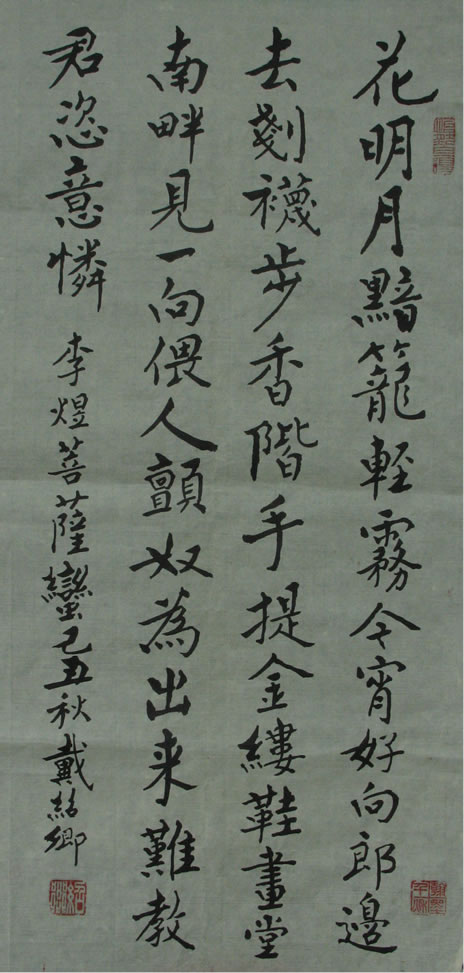 花明月黯籠輕霧今宵好向郎邊
去剗襪步香階手提金縷鞋畫堂
南畔見一向偎人顫奴為出来難教
君恣意憐
李煜菩薩蠻己丑秋戴紹卿